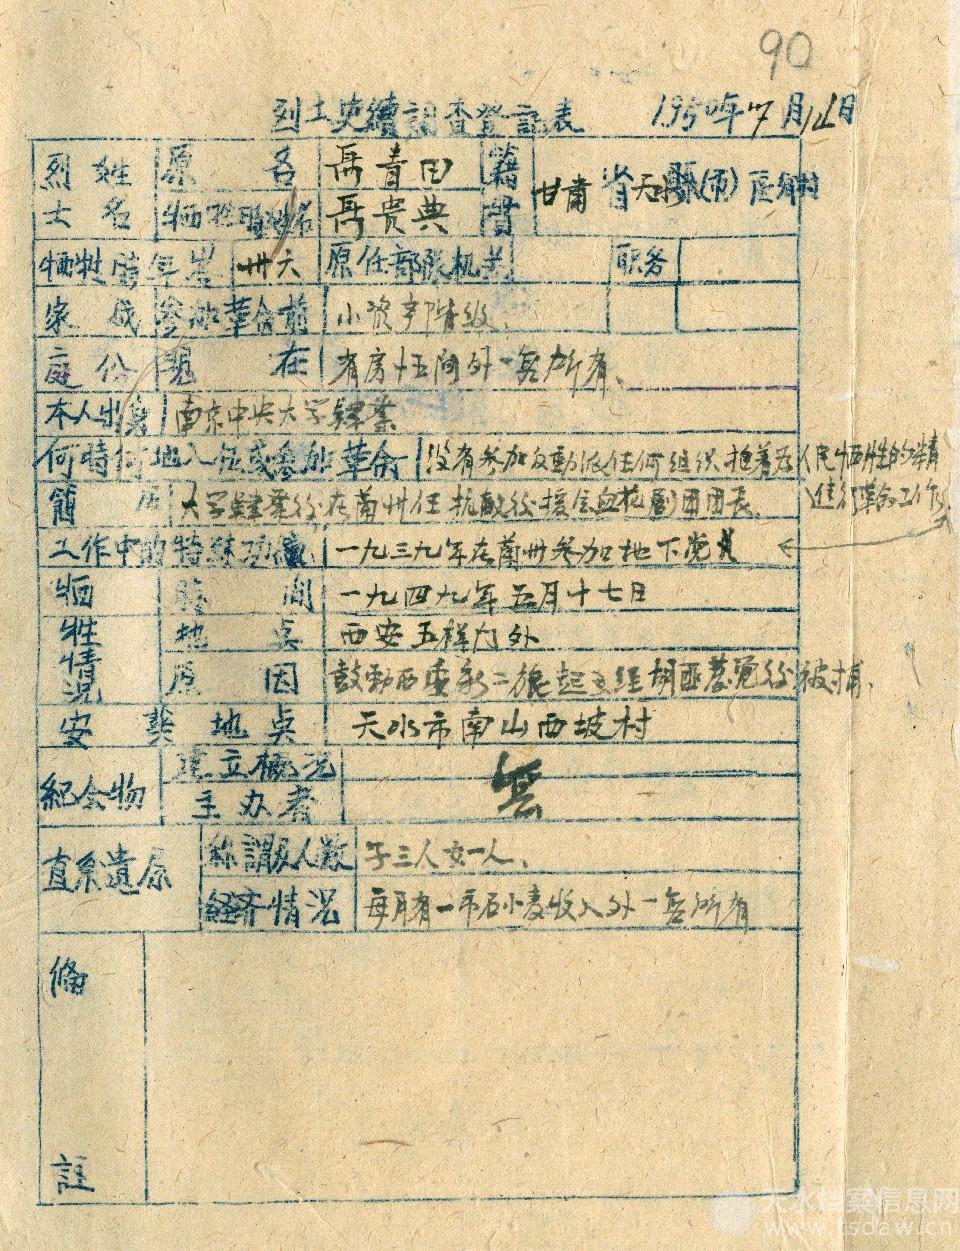 90
烈士史績調查登記表 1950年7月14日
烈士姓名 原名 聶青田 籍
牺牲時姓名 聶貴典 甘肃省天水縣(市) 區 鄉 村
牺牲時年岁 卅六 原任部隊机关 职务
家庭成份 参加革命前 小资产階级、
現在 有房十五间外一無所有、
本人出身 南京中央大学肄業
何時何地入伍或参加革命 没有参加反動派任何组织 抱着为人民牺牲的精
簡历 大学肄業後在蘭州任抗敵後援会血花劇团团长、 進行革命工作
工作中的特殊功績 一九三九年在蘭州参加地下党
牺牲情况 時间 一九四九年五月十七日
地點 西安玉祥门外
原因 鼓動西 起义经胡匪 覚後被捕、
安葬地点 天水市南山西坡村
紀念物 建立概况 無
主办者
直系遺屬 称謂及人数 子三人女一人、
経济情况 每月有一市石小麦收入外一無所有
備註
天水档案信息网
www.tsdaw.cn